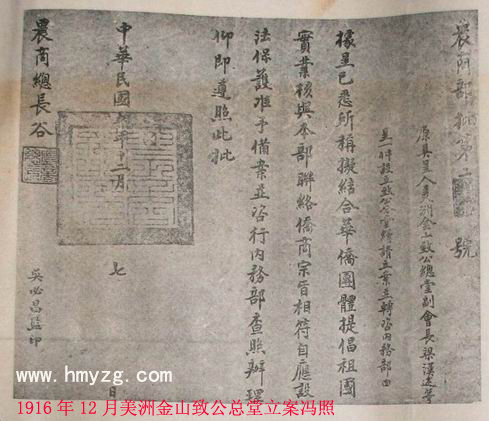 農商部批第二號
原具呈人美洲金山致公總堂副會長梁漢送等
呈一件設立致公總堂歸請立案並轉咨內務部由
據呈已悉所稱擬結合華僑團體提倡祖國
實業核與本部聯絡僑商宗旨相符自應設
法保護准予備案並咨行內務部查照辦理
仰即遵照此批
中華民國 年十二月 七 日
農商總長谷
吳必昌監印
www.hmyzg.com
1916年12月美洲金山致公总堂立案冯照